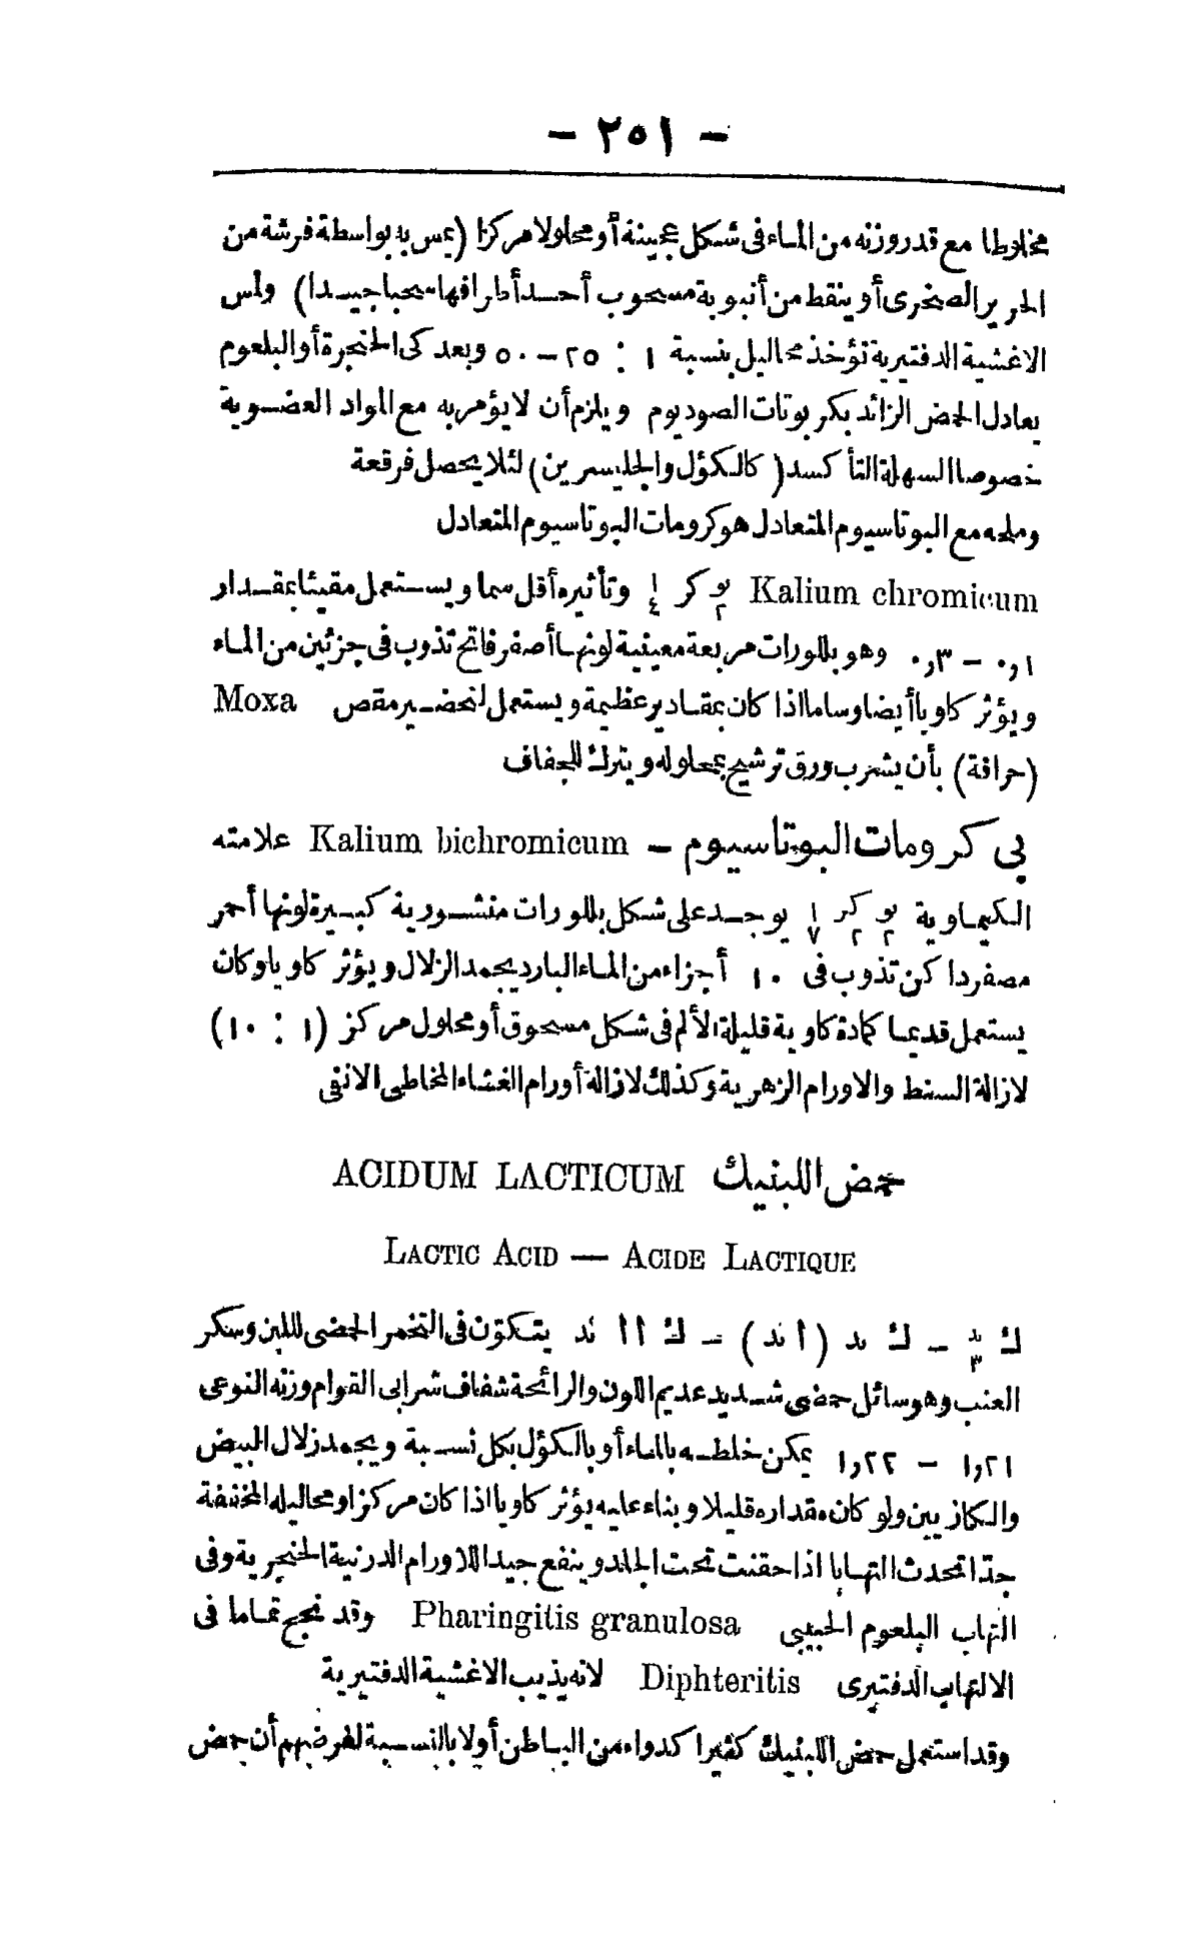 - ٢٥١ -
مخلوطا مع قدر وزنه من الماء فى شكل عجينة أو محلولا مركزا (يمس به بواسطة فرشة من
الحرير الصخرى أو ينقط من أنبوبة مسحوب أحد أطرافها سحبا جيدا) ولمس
الاغشية الدفتيرية تؤخذ محاليل بنسبة ١ : ٢٥ – ٥٠ وبعد كى الحنجرة أو البلعوم
يعادل الحمض الزائد بكربونات الصوديوم ويلزم أن لا يؤمر به مع المواد العضوية
خصوصا السهلة التأكسد (كالكؤل والجليسرين) لئلا يحصل فرقعة
وملحه مع البوتاسيوم المتعادل هو كرومات البوتاسيوم المتعادل
Kalium chromicum بو٢ كر ا٤ وتأثيره أقل سما ويستعمل مقيئا بمقدار
٠٫١ – ٠٫٣ وهو بللورات مربعة معينية لونها أصفر فاتح تذوب فى جزئين من الماء
ويؤثر كاويا أيضا وساما اذا كان بمقادير عظيمة ويستعمل لتحضير مقص Moxa
(حراقة) بأن يشرب ورق ترشيح بمحلوله ويترك للجفاف
بي كرومات البوتاسيوم – Kalium bichromicum علامته
الكيماوية بو٢ كر٢ ا٧ يوجد على شكل بللورات منشورية كبيرة لونها أحمر
مصفر داكن تذوب فى ١٠ أجزاء من الماء البارد يجمد الزلال ويؤثر كاويا وكان
يستعمل قديما كمادة كاوية قليلة الألم فى شكل مسحوق أو محلول مركز (١ : ١٠)
لازالة السنط والاورام الزهرية وكذلك لازالة أورام الغشاء المخاطى الانفى
حمض اللبنيك ACIDUM LACTICUM
LACTIC ACID — ACIDE LACTIQUE
ك يد٣ – ك يد (ا يد) – ك اا يد يتكوّن فى التخمر الحمضى للبن وسكر
العنب وهو سائل حمضى شديد عديم اللون والرائحة شفاف شرابى القوام وزنه النوعى
١٫٢١ – ١٫٢٢ يمكن خلطه بالماء أو بالكؤل بكل نسبة ويجمد زلال البيض
والكازيين ولو كان مقداره قليلا وبناء عليه يؤثر كاويا اذا كان مركزا ومحاليله المخففة
جدّا تحدث التهابا اذا حقنت تحت الجلد وينفع جيدا للاورام الدرنية الحنجرية وفى
التهاب البلعوم الحبيبي Pharingitis granulosa وقد نجح تماما فى
الالتهاب الدفتيرى Diphteritis لانه يذيب الاغشية الدفتيرية
وقد استعمل حمض اللبنيك كثيرا كدواء من الباطن أولا بالنسبة لفرضهم أن حمض